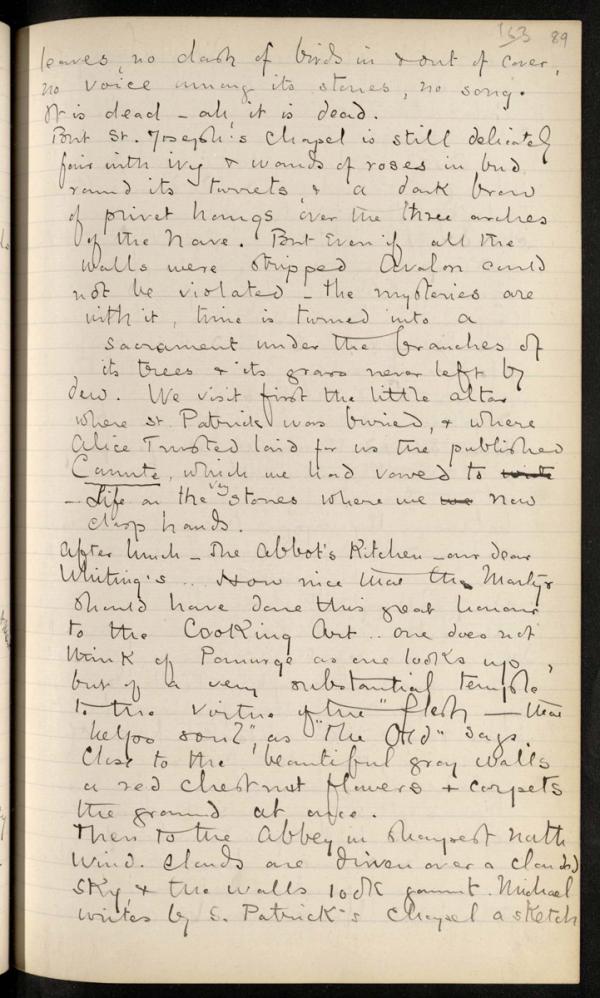 163 89
leaves, no dash of birds in & out of cover,
no voice among its stones, no song.
It is dead – ah, it is dead.
But St. Joseph's Chapel is still delicately
fair with ivy & wands of roses in bud
round its turrets, & a dark brow
of privet hangs over the three arches
of the Nave. But even if all the
walls were stripped Avalon could
not be violated – the mysteries are
with it, time is turned into a
sacrament under the branches of
its trees & its grass never left by
dew. We visit first the little altar
where St. Patrick was buried, & where
Alice Trusted laid for us the published
Canute, which we had vowed to write
– Life on the very stones where we now
clasp hands.
After lunch – The Abbot's Kitchen – our dear
Whiting's .. How nice that the Martyr
should have done this great honour
to the Cooking Art .. One does not
think of Panurge as one looks up,
but of a very substantial temple
to the virtue of the "flesh – that
helps soul", as "The Old" says.
Close to the beautiful gray walls
a red chestnut flowers & carpets
the ground at once.
Then to the Abbey in sharpest north
wind. Clouds are driven over a clouded
sky, & the walls look gaunt. Michael
writes by S. Patrick's Chapel a sketch